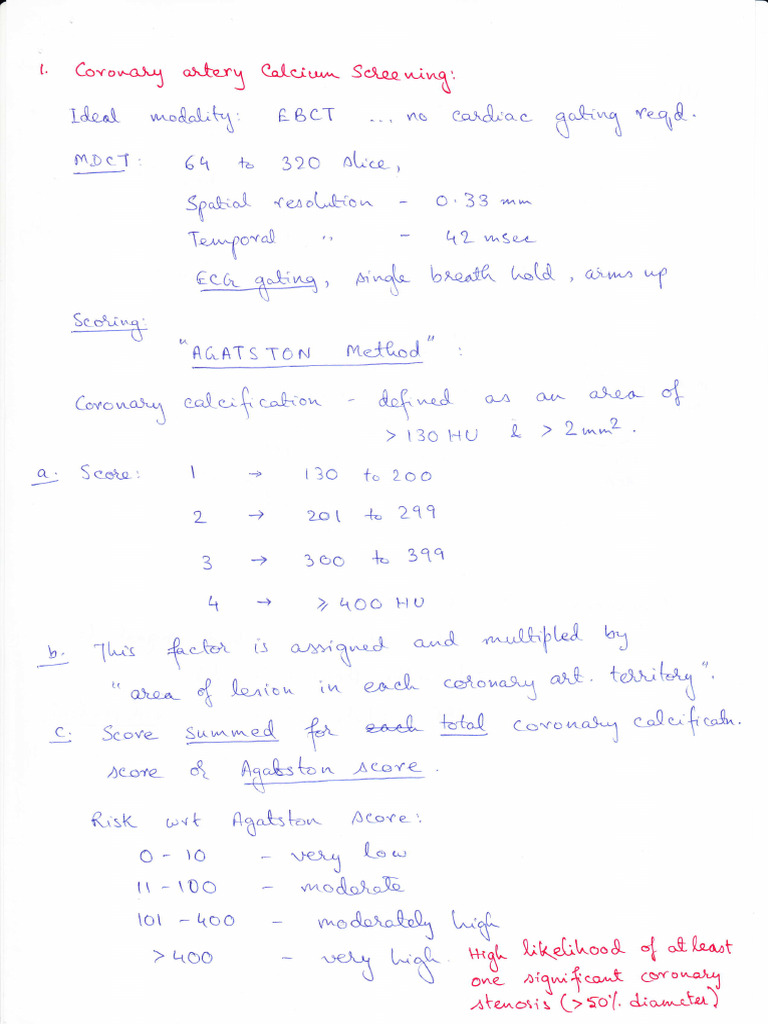 1. Coronary artery Calcium Screening:
Ideal modality: EBCT ... no cardiac gating reqd.
MDCT: 64 to 320 slice,
Spatial resolution - 0.33 mm
Temporal " - 42 msec
ECG gating, single breath hold, arms up
Scoring:
"AGATSTON Method" :
Coronary calcification - defined as an area of
> 130 HU & > 2mm².
a. Score: 1 → 130 to 200
2 → 201 to 299
3 → 300 to 399
4 → ≥ 400 HU
b. This factor is assigned and multipled by
"area of lesion in each coronary art. territory".
c. Score summed for each total coronary calcificatn.
score or Agatston score.
Risk wrt Agatston score:
0 - 10 - very low
11 - 100 - moderate
101 - 400 - moderately high
> 400 - very high. High likelihood of at least
one significant coronary
stenosis (>50% diameter)